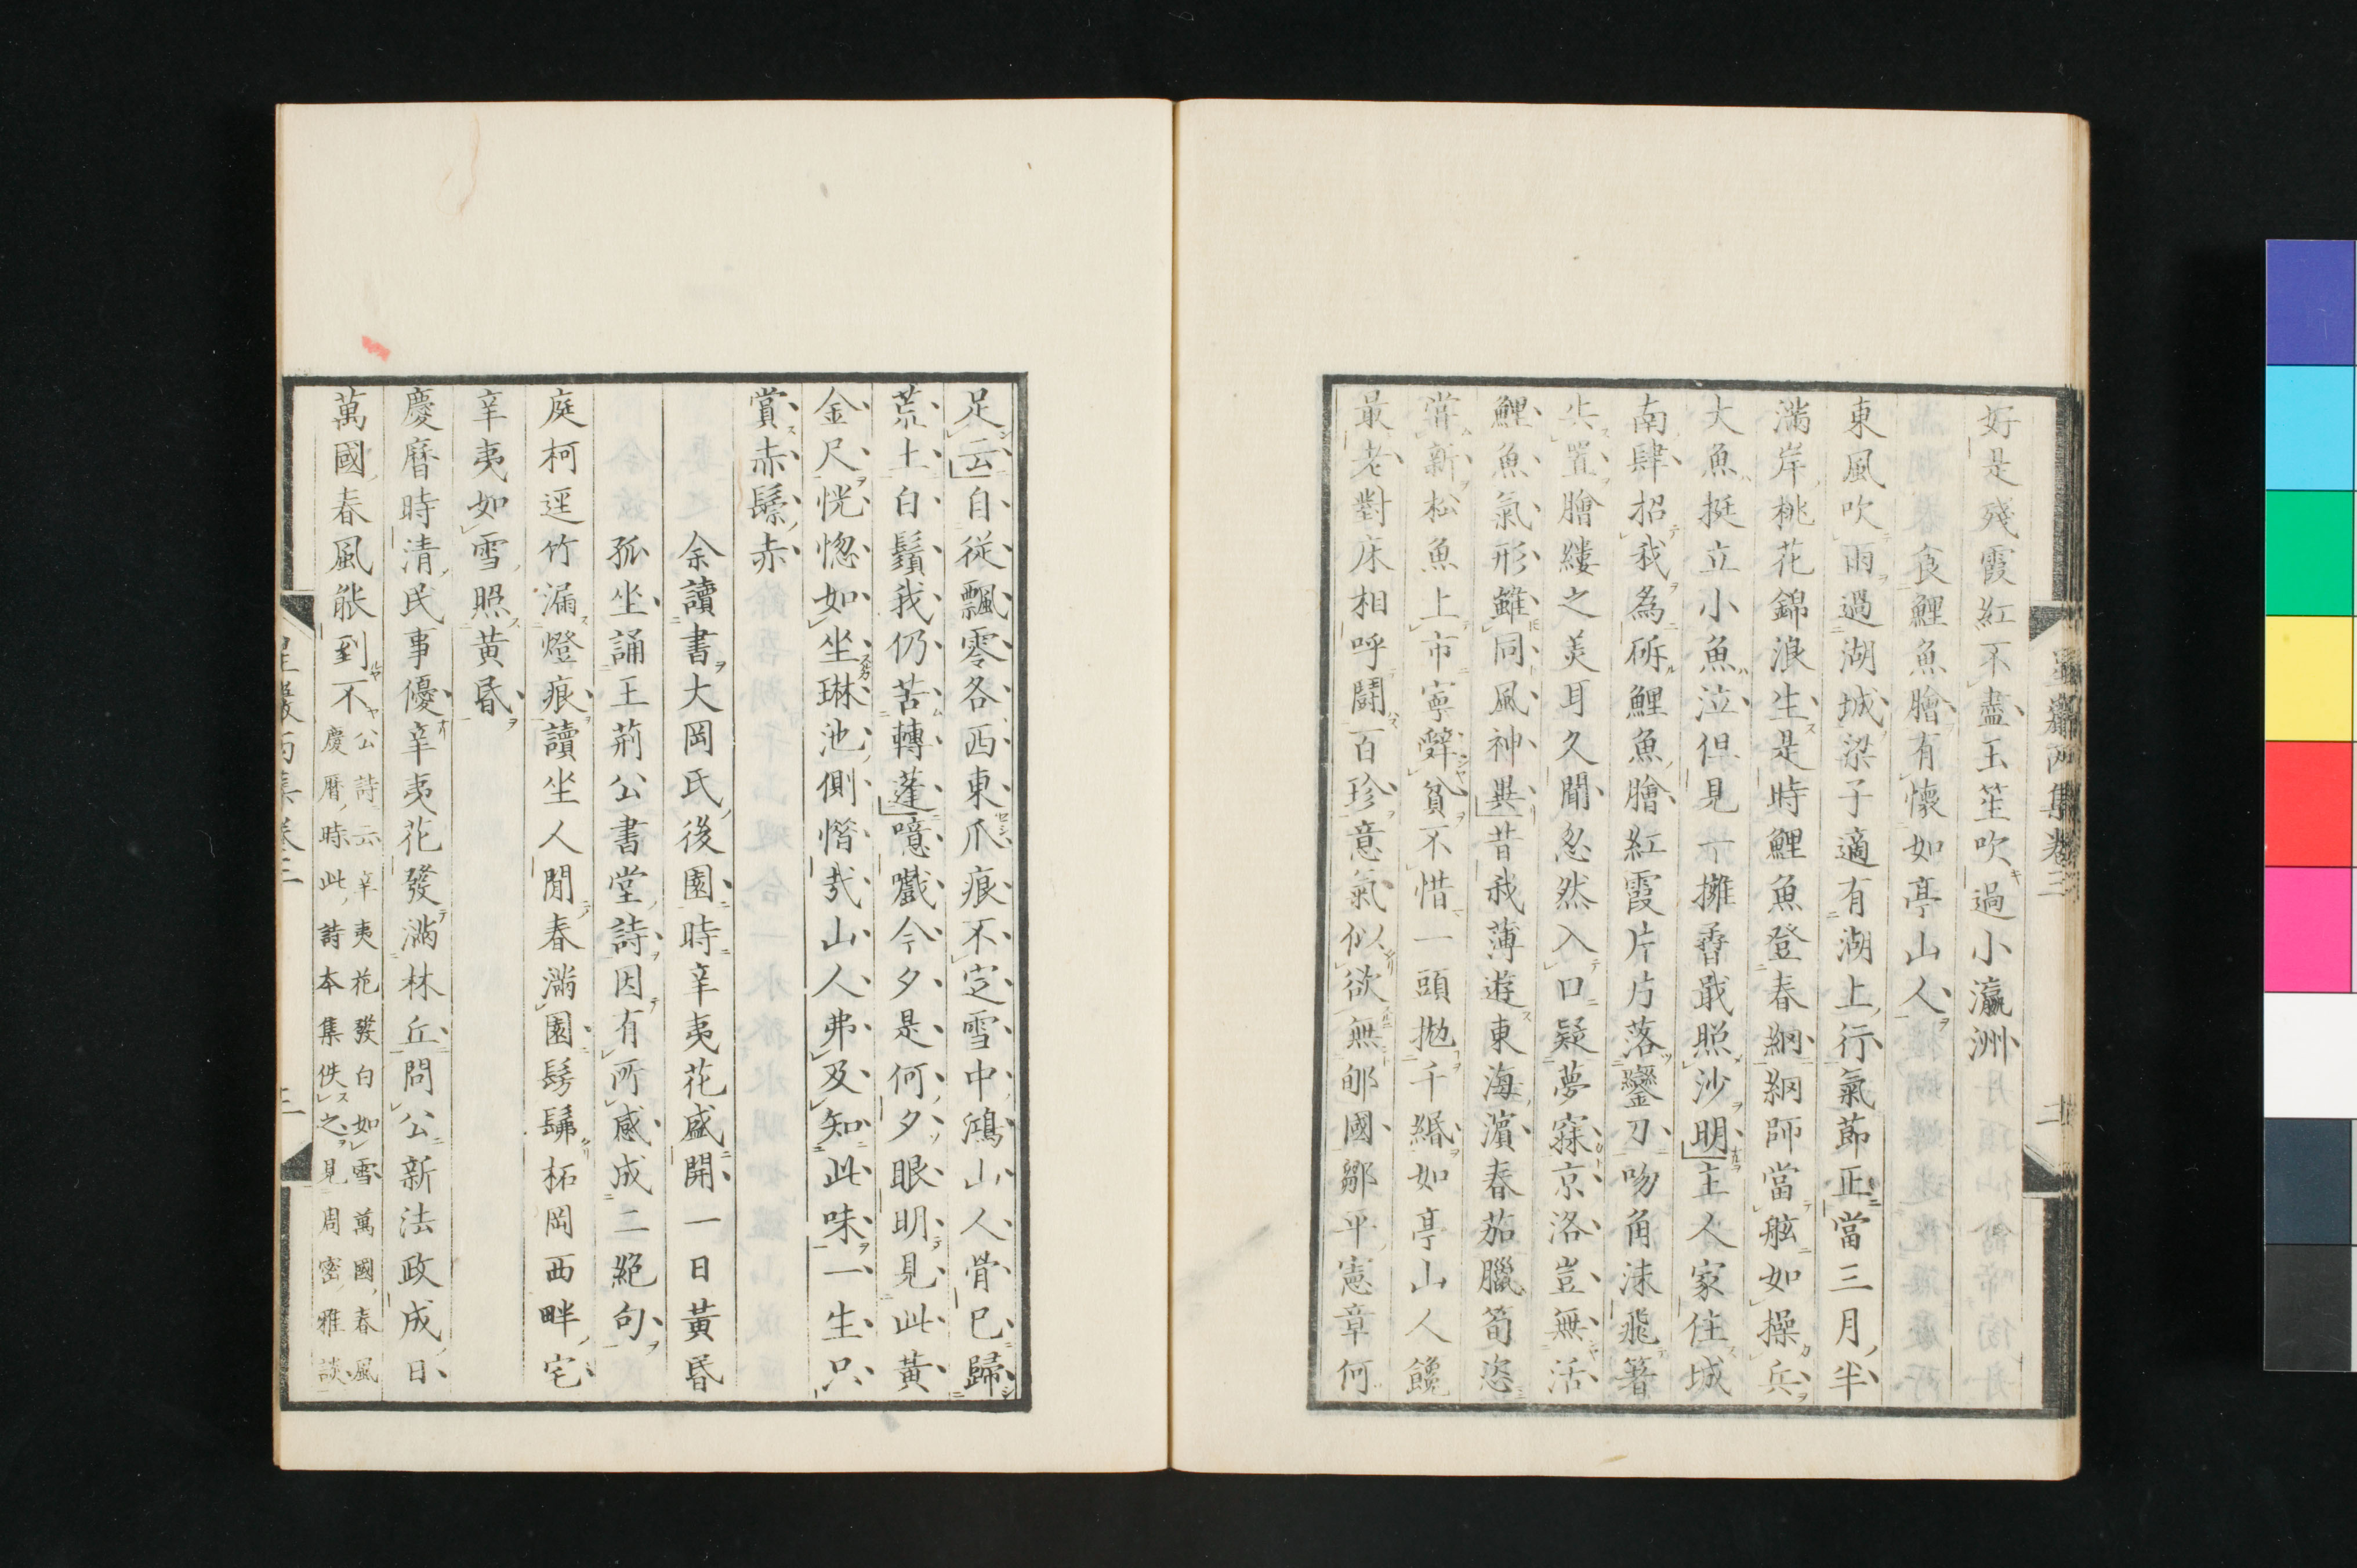 好是殘霞紅不盡玉笙吹過小瀛洲
食鯉魚膾有懷如亭山人
東風吹雨過湖城梁子適有湖上行氣節正當三月半
滿岸桃花錦浪生是時鯉魚登春網網師當舷如操兵
大魚挺立小魚泣但見十擁香戢照沙明主人家住城
南肆招我為斫鯉魚膾紅霞片片落鑾刀吻角沫飛箸
失置膾縷之美耳久聞忽然入口疑夢寐京洛豈無活
鯉魚氣形雖同風神異昔我薄遊東海濱春茄臘筍恣
嘗新松魚上市寧辭貧不惜一頭拋千緡如亭山人饞
最老對床相呼鬪百珍意氣似欲無郇國鄒平憲章何
足云自從飄零各西東爪痕不定雪中鴻山人骨已歸
荒土白鬚我仍苦轉蓬噫戲今夕是何夕眼明見此黃
金尺恍惚如坐琳池側憯哉山人弗及知此味一生只
賞赤鬃赤
余讀書大岡氏後園時辛夷花盛開一日黃昏
孤坐誦王荊公書堂詩因有所感成二絕句
庭柯逕竹漏燈痕讀坐人閒春滿園髣髴柘岡西畔宅
辛夷如雪照黃昏
慶曆時清民事優辛夷花發滿林丘問公新法政成日
萬國春風能到不
公詩云辛夷花發白如雪萬國春風
慶曆時此詩本集佚之見周密雅談